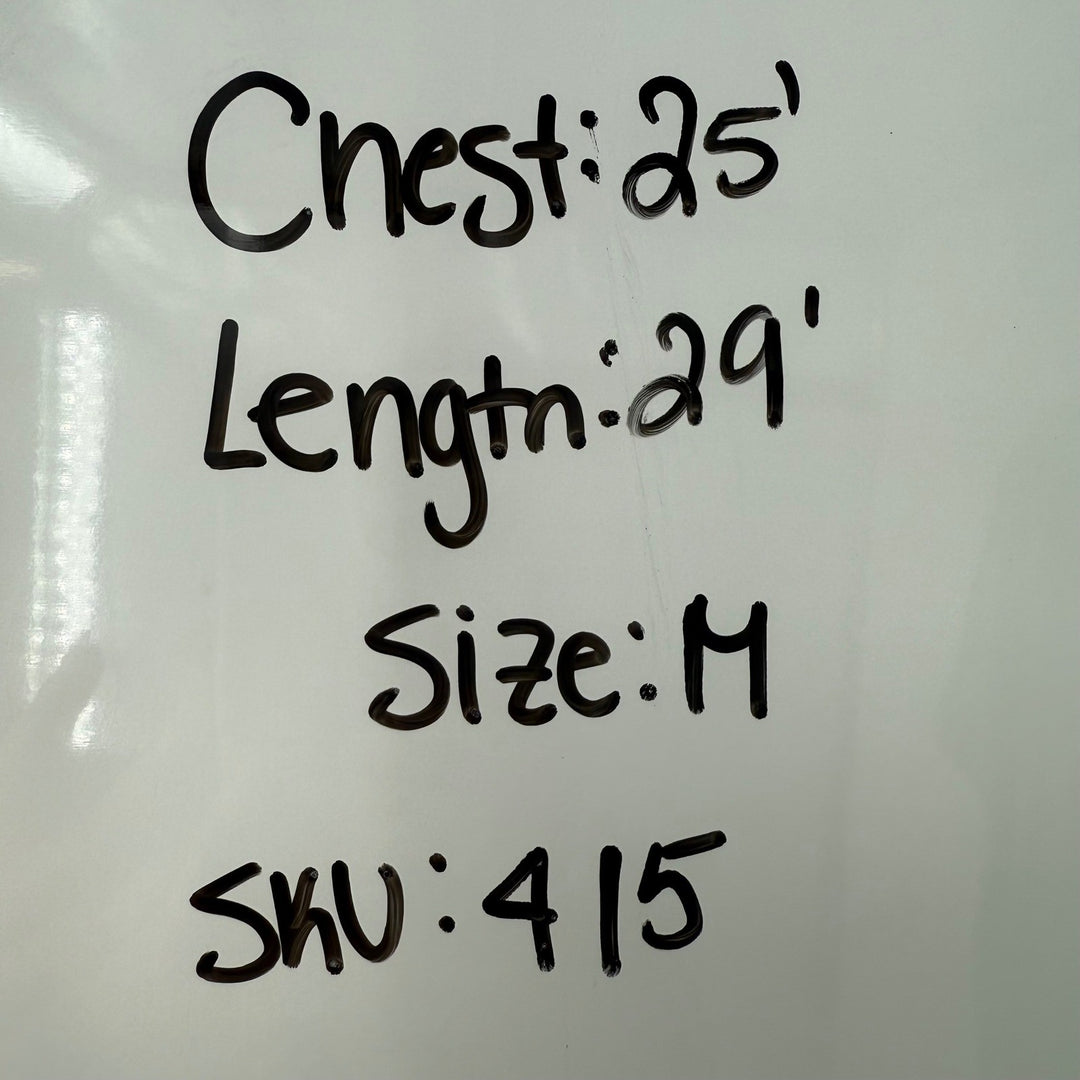 Chest: 25'
Length: 29'
Size: M
SKU: 415